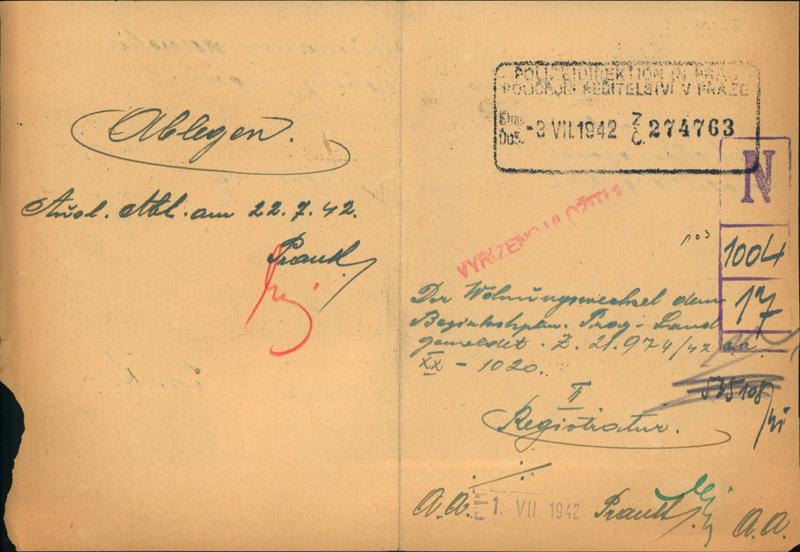 Ablegen.
Ausl. Abt. am 22.7.42.
Prantl
POLIZEIDIREKTION IN PRAG
POLICEJNÍ ŘEDITELSTVÍ V PRAZE
Eing.
Doš. -3 VII. 1942 Z Č. 274763
N
VYŘÍZENO ULOŽITI!
103
1004
17
Der Wohnungswechsel dem
Bezirkshptm. Prag-Land
gemeldet. Z. 21.974/42
XX - 1020.
II
Registratur.
A.A. 1. VII. 1942 Prantl
A.A.